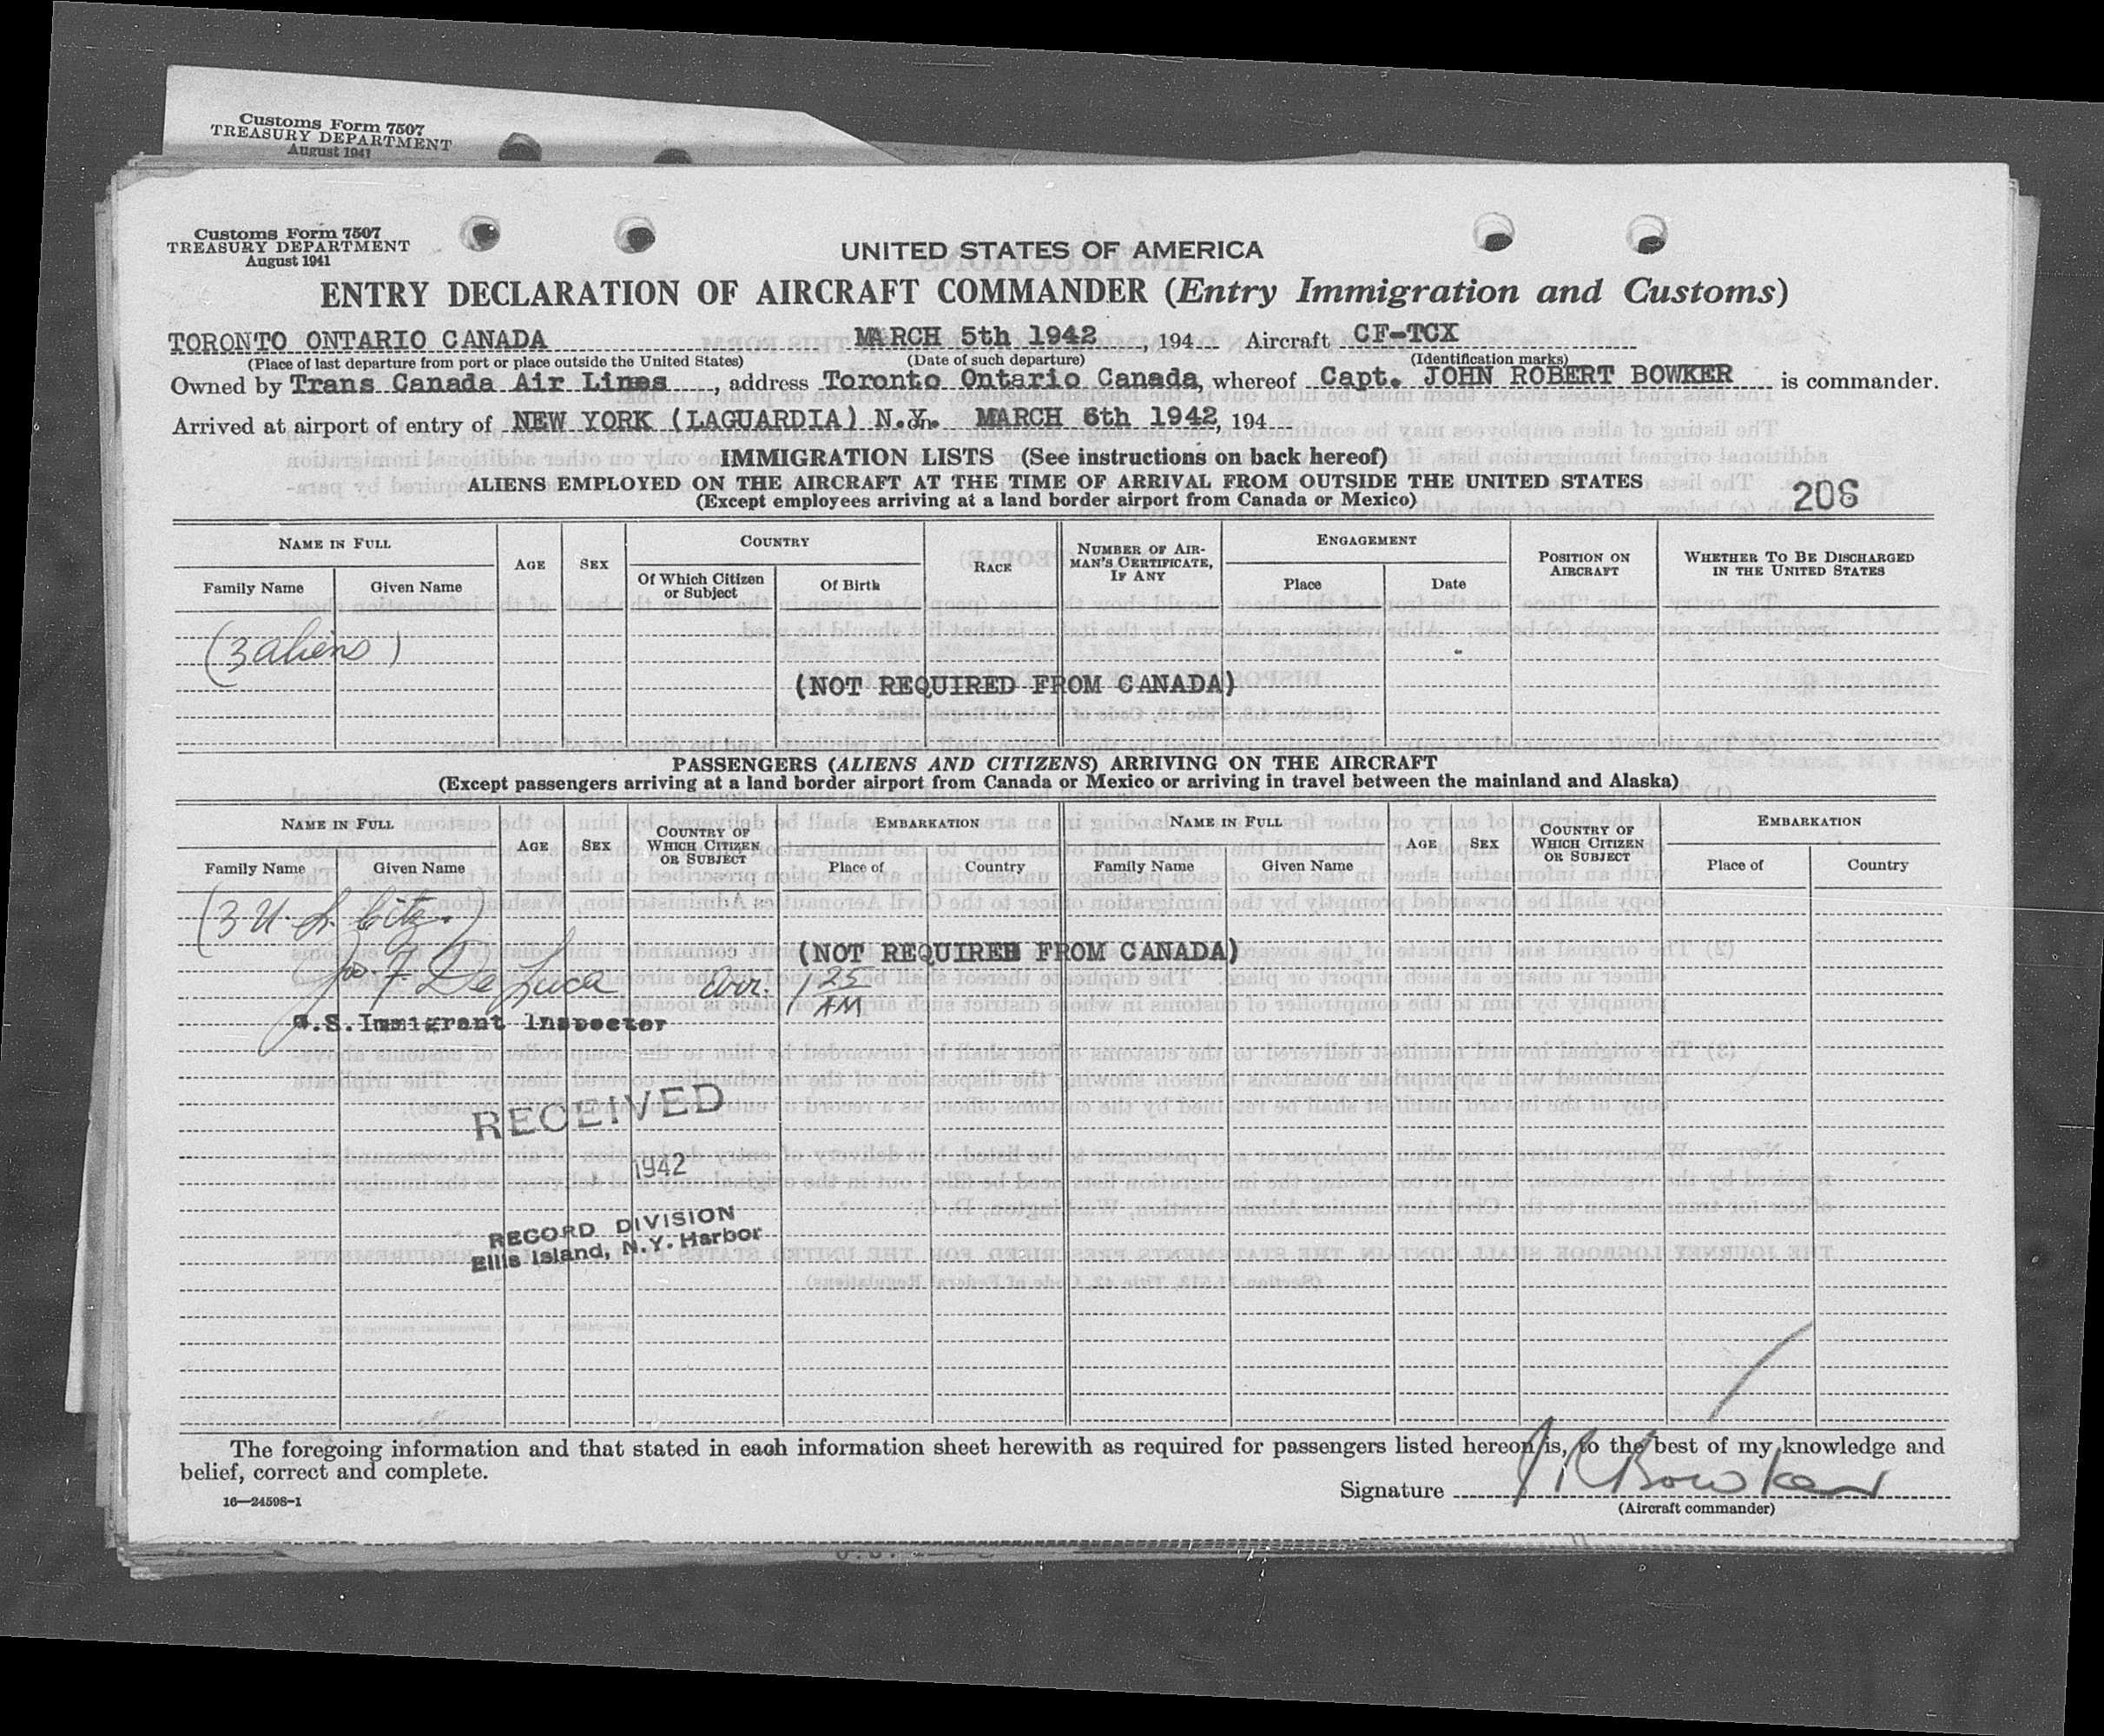 Customs Form 7507
TREASURY DEPARTMENT
August 1941
Customs Form 7507
TREASURY DEPARTMENT
August 1941
UNITED STATES OF AMERICA
ENTRY DECLARATION OF AIRCRAFT COMMANDER (Entry Immigration and Customs)
TORONTO ONTARIO CANADA MARCH 5th 1942, 194 Aircraft CF-TCX
(Place of last departure from port or place outside the United States) (Date of such departure) (Identification marks)
Owned by Trans Canada Air Lines, address Toronto Ontario Canada, whereof Capt. JOHN ROBERT BOWKER is commander.
Arrived at airport of entry of NEW YORK (LAGUARDIA) N.Y. on MARCH 6th 1942, 194
IMMIGRATION LISTS (See instructions on back hereof)
ALIENS EMPLOYED ON THE AIRCRAFT AT THE TIME OF ARRIVAL FROM OUTSIDE THE UNITED STATES
(Except employees arriving at a land border airport from Canada or Mexico)
206
NAME IN FULL AGE SEX COUNTRY RACE NUMBER OF AIRMAN'S CERTIFICATE, IF ANY ENGAGEMENT POSITION ON AIRCRAFT WHETHER TO BE DISCHARGED IN THE UNITED STATES
Family Name Given Name Of Which Citizen or Subject Of Birth Place Date
(3 aliens)
(NOT REQUIRED FROM CANADA)
PASSENGERS (ALIENS AND CITIZENS) ARRIVING ON THE AIRCRAFT
(Except passengers arriving at a land border airport from Canada or Mexico or arriving in travel between the mainland and Alaska)
NAME IN FULL AGE SEX COUNTRY OF WHICH CITIZEN OR SUBJECT EMBARKATION NAME IN FULL AGE SEX COUNTRY OF WHICH CITIZEN OR SUBJECT EMBARKATION
Family Name Given Name Place of Country Family Name Given Name Place of Country
(3 U.S. Citz.)
(NOT REQUIRED FROM CANADA)
Jos. F. De Luca arr. 1 25 AM
U.S. Immigrant Inspector
RECEIVED
1942
RECORD DIVISION
Ellis Island, N.Y. Harbor
The foregoing information and that stated in each information sheet herewith as required for passengers listed hereon is, to the best of my knowledge and
belief, correct and complete.
Signature J R Bowker
(Aircraft commander)
16—24598-1